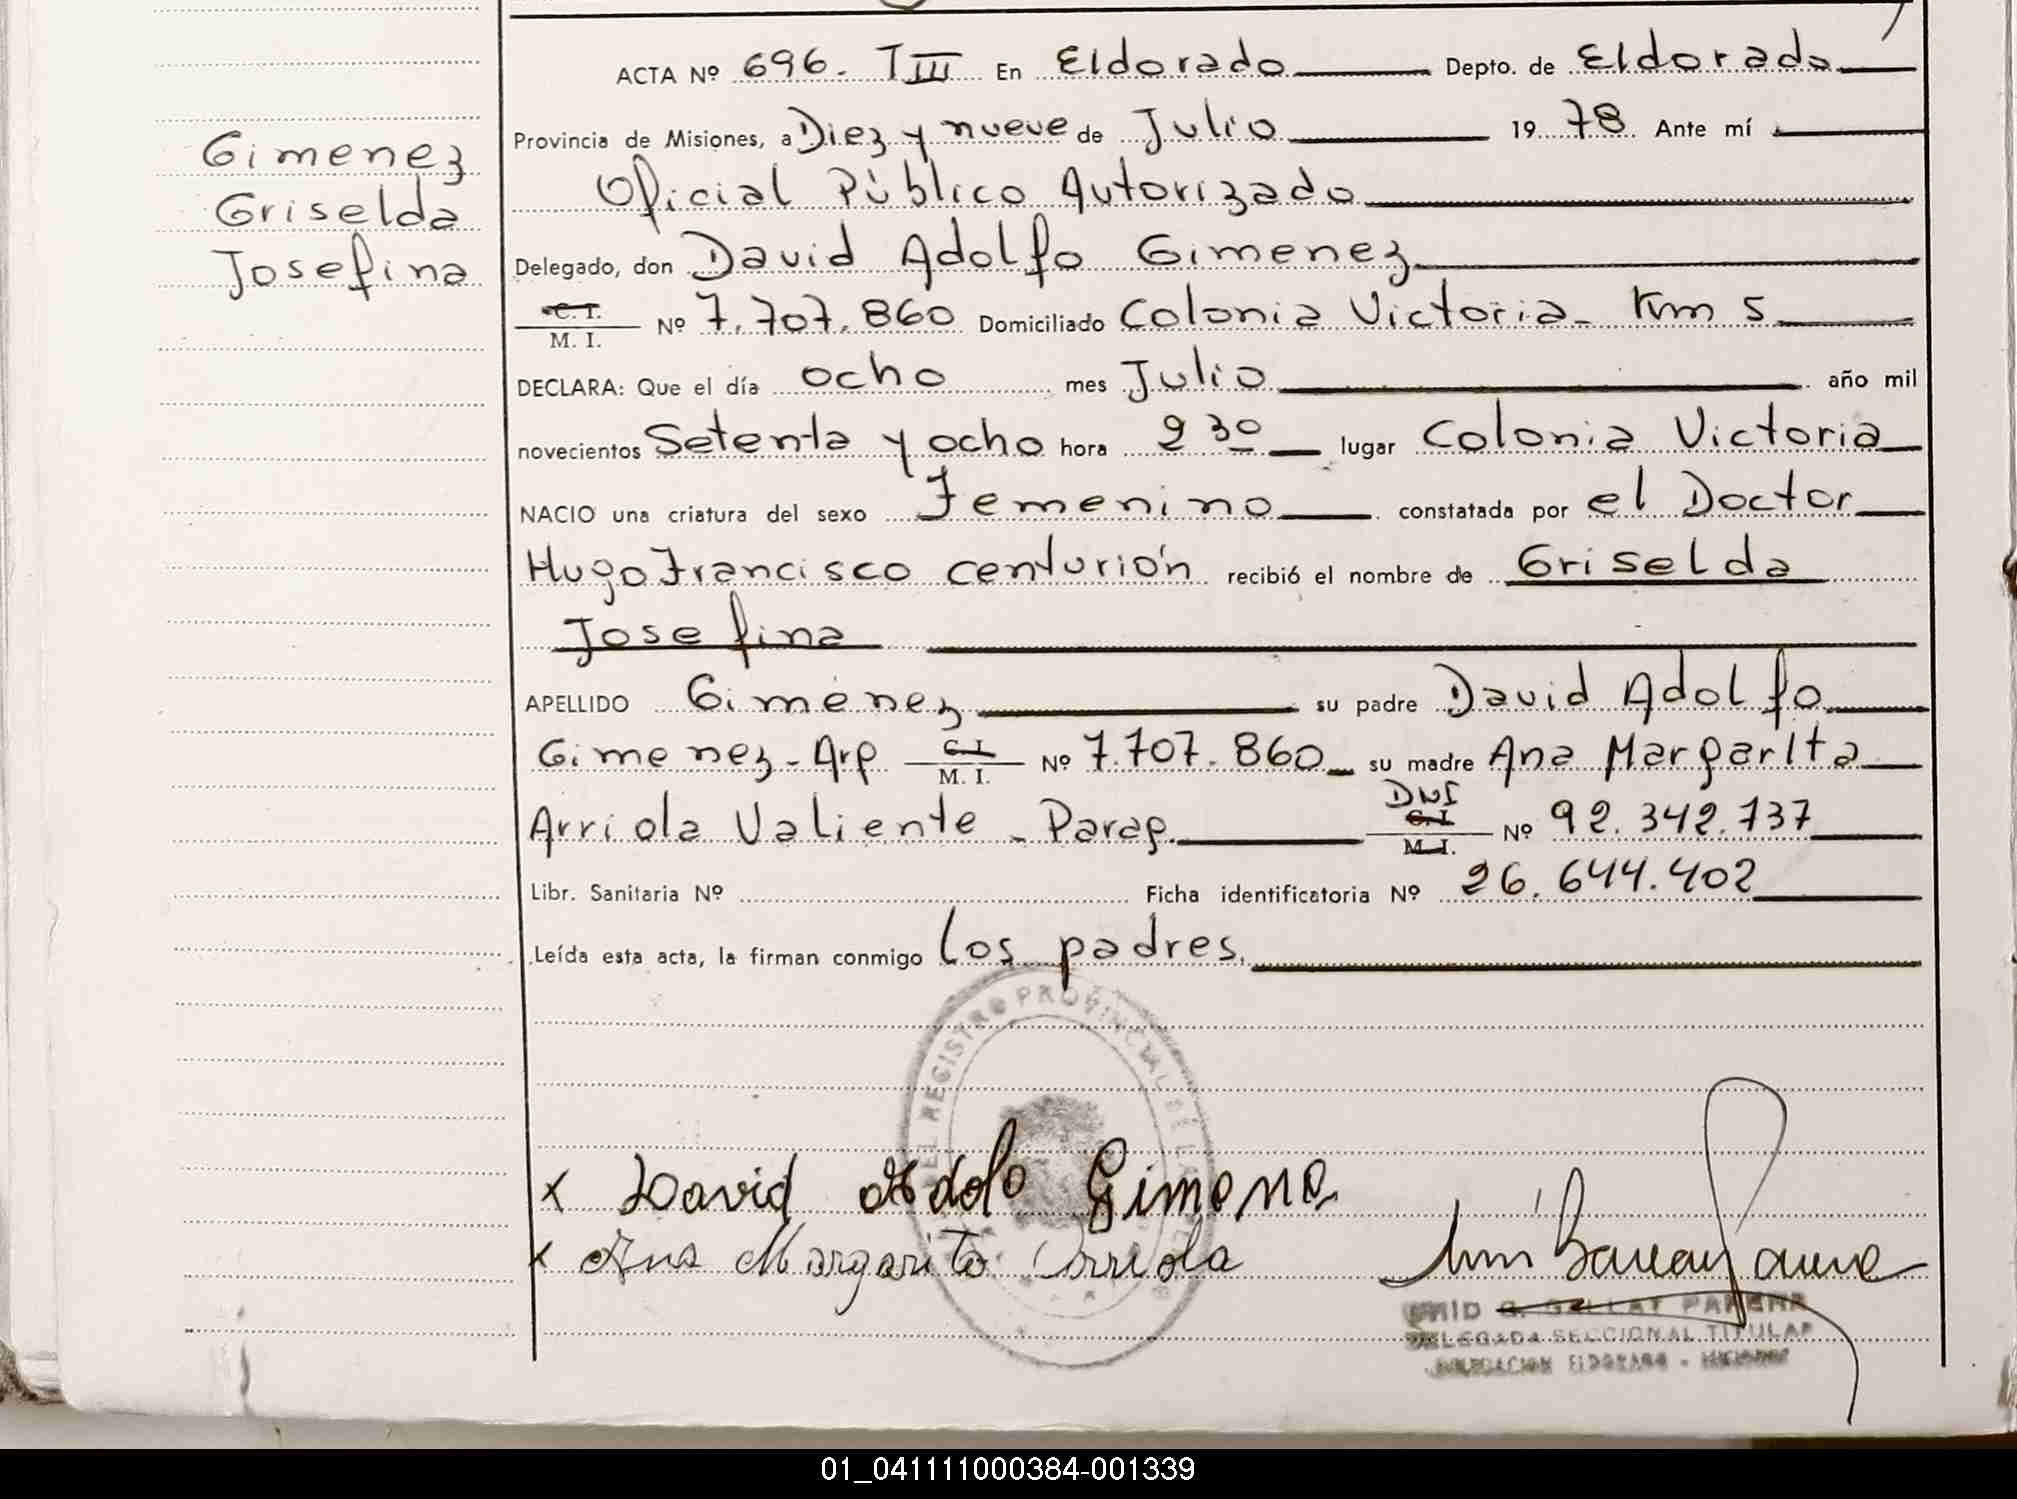 ACTA Nº 696. TIII En Eldorado Depto. de Eldorado
Gimenez
Griselda
Josefina
Provincia de Misiones, a Diez y nueve de Julio 1978 Ante mí
Oficial Público Autorizado
Delegado, don David Adolfo Gimenez
C. I.
M. I. Nº 7.707.860 Domiciliado Colonia Victoria - Km 5
DECLARA: Que el día ocho mes Julio año mil
novecientos Setenta y ocho hora 2 30 lugar Colonia Victoria
NACIO una criatura del sexo Femenino constatada por el Doctor
Hugo Francisco Centurión recibió el nombre de Griselda
Josefina
APELLIDO Gimenez su padre David Adolfo
Gimenez - Arg. C. I. M. I. Nº 7.707.860 su madre Ana Margarita
Arriola Valiente - Parag. DNI C. I. M. I. Nº 92.342.737
Libr. Sanitaria Nº Ficha identificatoria Nº 26.644.402
Leída esta acta, la firman conmigo los padres.
REGISTRO PROVINCIAL DE LAS
x David Adolo Gimene
x Ana Margarita Arriola
DELEGADA SECCIONAL TITULAR
DELEGACION ELDORADO - MISIONES
01_041111000384-001339